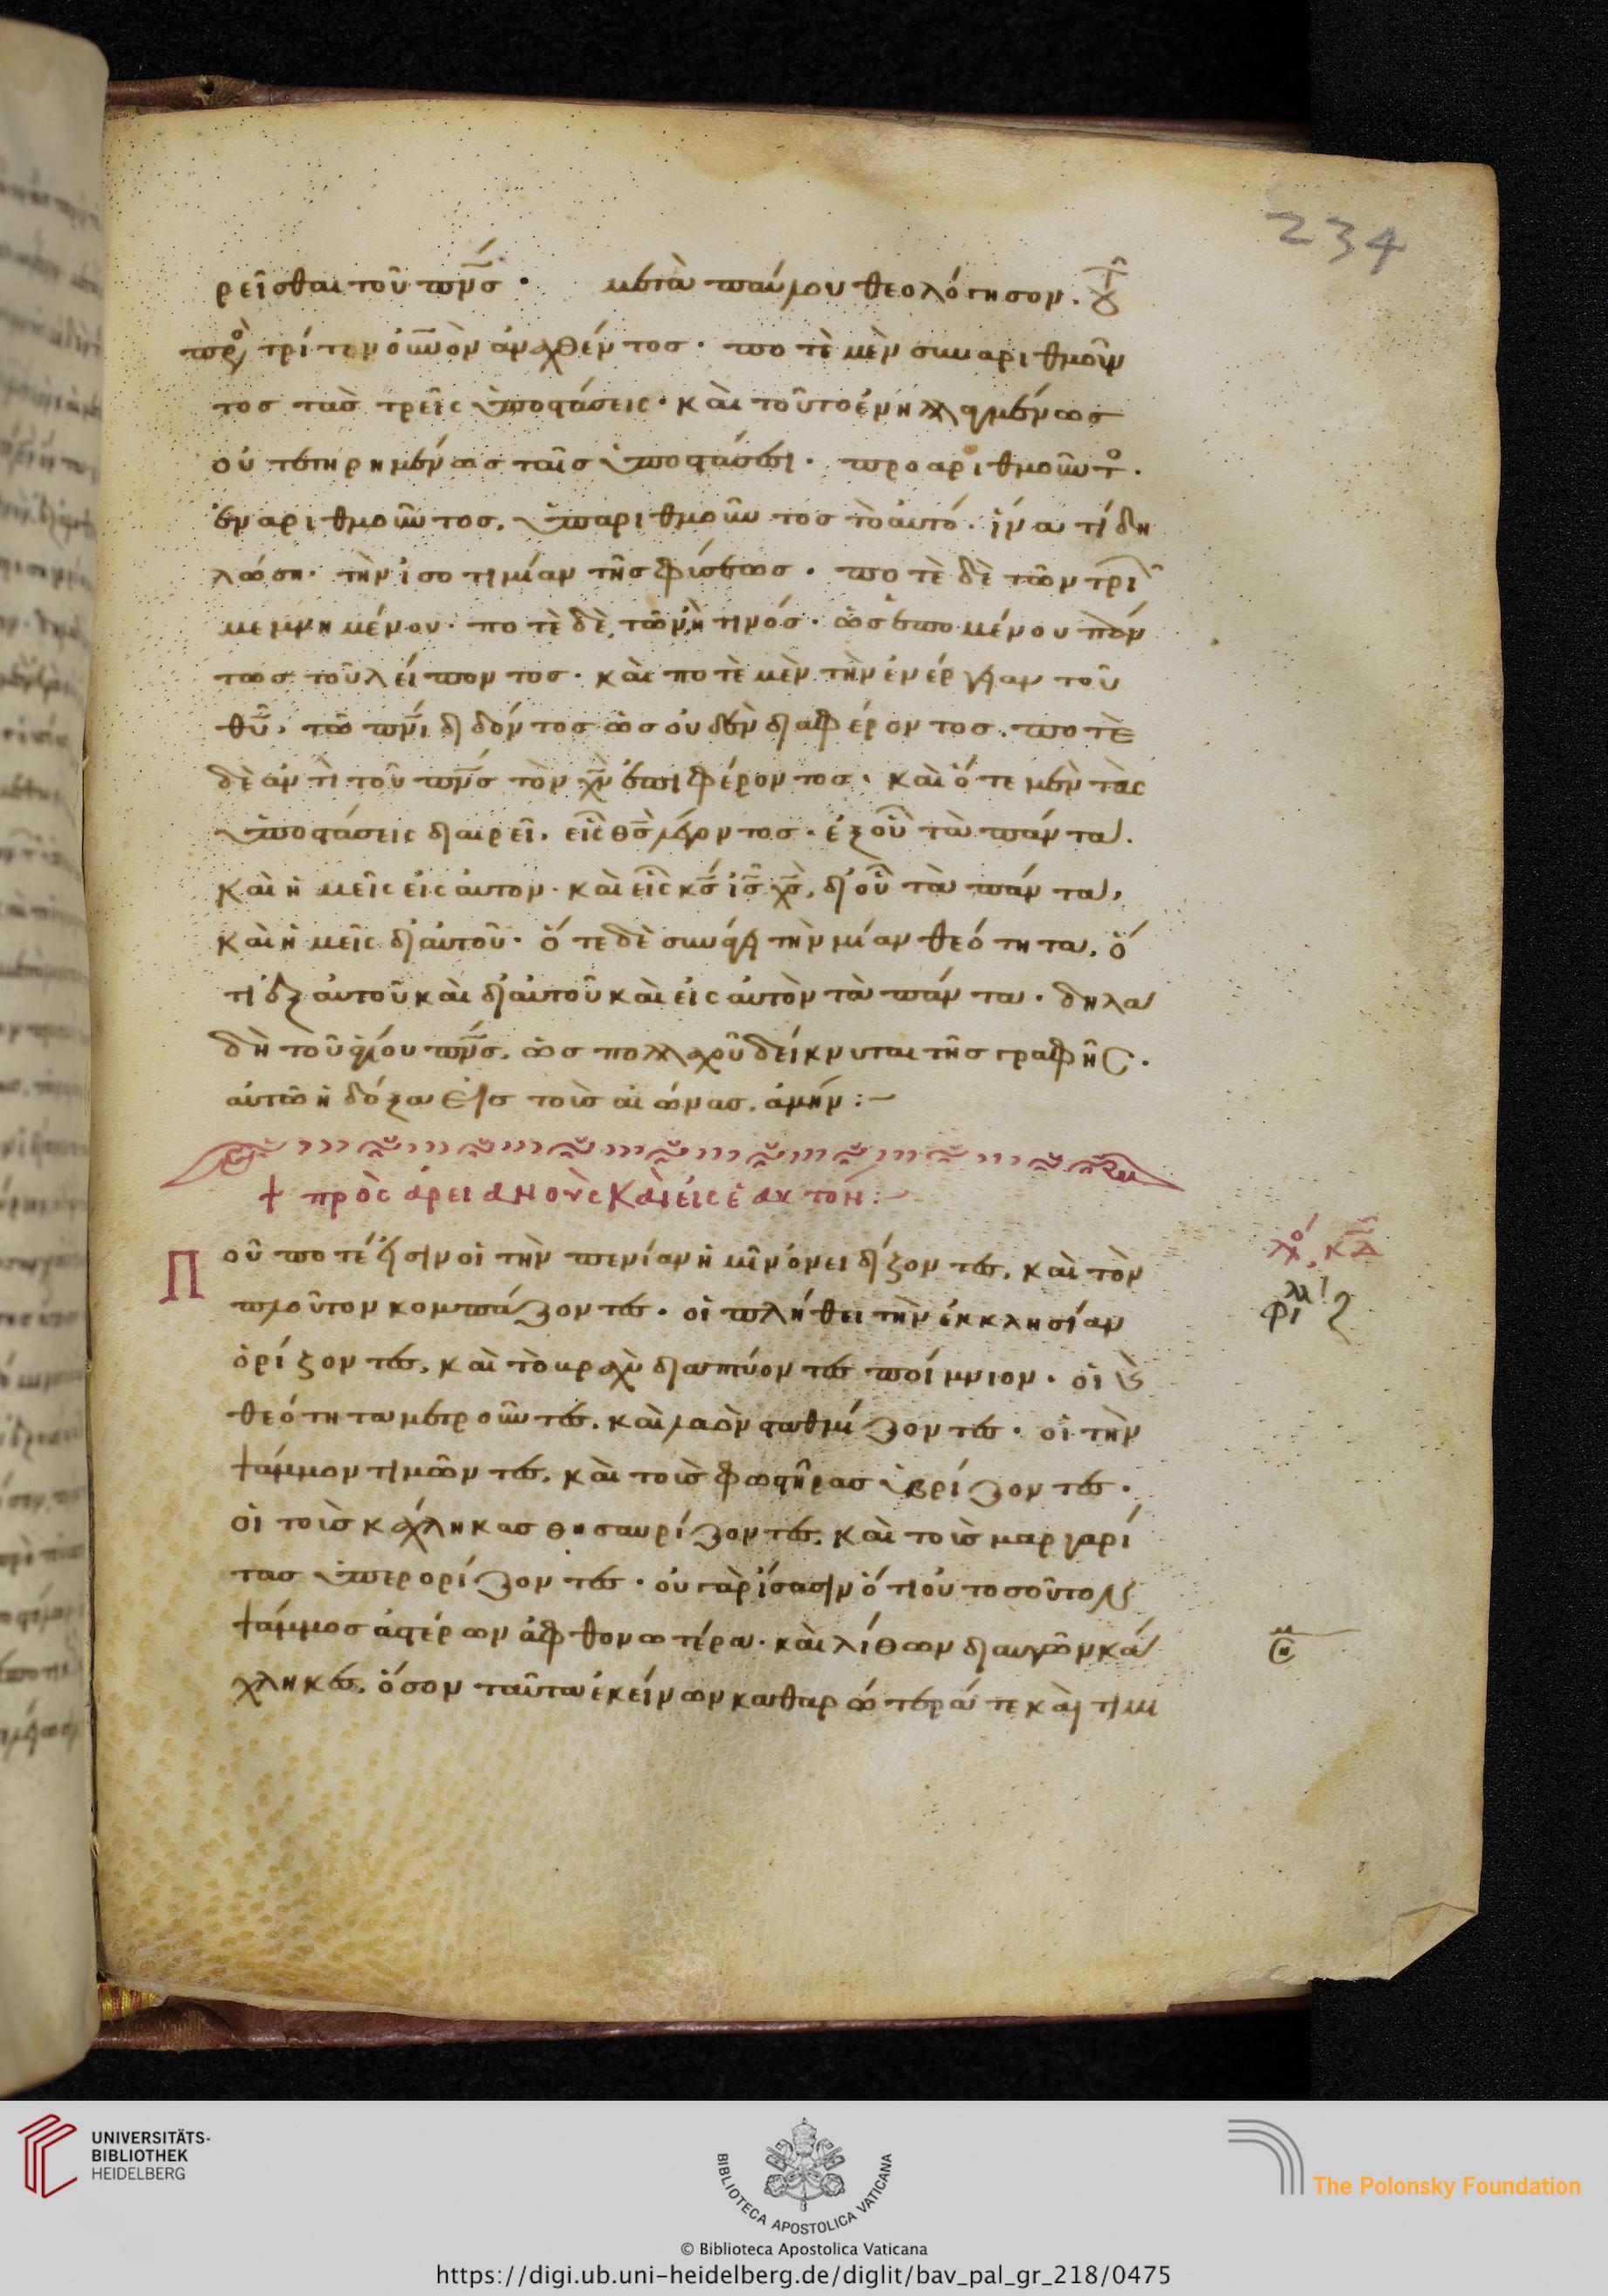 234
ρεῖσθαι τοῦ πνς · μετὰ παύλου θεολόγησον. τοῦ
πρὸς τρίτον οὐνὸν ἀναχθέντος · ποτὲ μὲν συναριθμοῦν
τος τὰς τρεῖς ὑποστάσεις · καὶ τοῦτο ἐνηλλαγμένως
οὐ τετηρημένως ταῖς ὑποστάσεσι · προαριθμοῦντο.
ἐναριθμοῦντος, ὑπαριθμοῦντος τὸ αὐτό · ἵνα τί δη
λώση · τὴν ἰσοτιμίαν τῆς φύσεως · ποτὲ δὲ τῶν τριῶ
μεμνημένου · ποτὲ δὲ, τῶν ἢ τινός · ὡς ἑπομένου πάν
τως τοῦ λείποντος · καὶ ποτὲ μὲν τὴν ἐνέργειαν τοῦ
θυ, τῶ πνι διδόντος ὡς οὐδὲν διαφέροντος. ποτὲ
δὲ ἀντὶ τοῦ πνς τὸν χν ἐπιφέροντος · καὶ ὅτε μὲν τὰς
ὑποστάσεις διαιρεῖ. εἷς θς λέγοντος · ἐξ οὗ τὰ πάντα.
καὶ ἡμεῖς εἰς αὐτον · καὶ εἷς κς ις χς, δι' οὗ τὰ πάντα,
καὶ ἡμεῖς δι αὐτοῦ · ὅτε δὲ συνάγει τὴν μίαν θεότητα, ὅ
τι ἐξ αὐτοῦ καὶ δι αὐτοῦ καὶ εἰς αὐτὸν τὰ πάντα · δηλα
δὴ τοῦ ἁγίου πνς, ὡς πολλαχοῦ δείκνυται τῆς γραφῆς.
αὐτῶ ἡ δόξα εἰς τοὺς αἰῶνας. ἀμήν :-
+ πρὸς ἀρειανοὺς καὶ εἰς ἑαυτόν :-
Ποῦ ποτέ εἰσιν οἱ τὴν πενίαν ἡμῖν ὀνειδίζοντες, καὶ τὸν
πλοῦτον κομπάζοντες · οἱ πλήθει τὴν ἐκκλησίαν
ὁρίζοντες, καὶ τὸ βραχὺ διαπτύοντες ποίμνιον · οἱ
θεότητα μετροῦντες, καὶ λαὸν σταθμίζοντες · οἱ τὴν
ψάμμον τιμῶντες, καὶ τοὺς φωστῆρας ὑβρίζοντες ·
οἱ τοὺς κάχληκας θησαυρίζοντες, καὶ τοὺς μαργαρί
τας ὑπερορίζοντες · οὐ γὰρ ἴσασιν ὅτι οὐ τοσοῦτον
ψάμμος ἀστέρων ἀφθονωτέρα · καὶ λίθων διαυγῶν κά
χληκες, ὅσον ταῦτα ἐκείνων καθαρώτερά τε καὶ τιμι
UNIVERSITÄTS-
BIBLIOTHEK
HEIDELBERG
BIBLIOTECA APOSTOLICA VATICANA
The Polonsky Foundation
© Biblioteca Apostolica Vaticana
https://digi.ub.uni-heidelberg.de/diglit/bav_pal_gr_218/0475